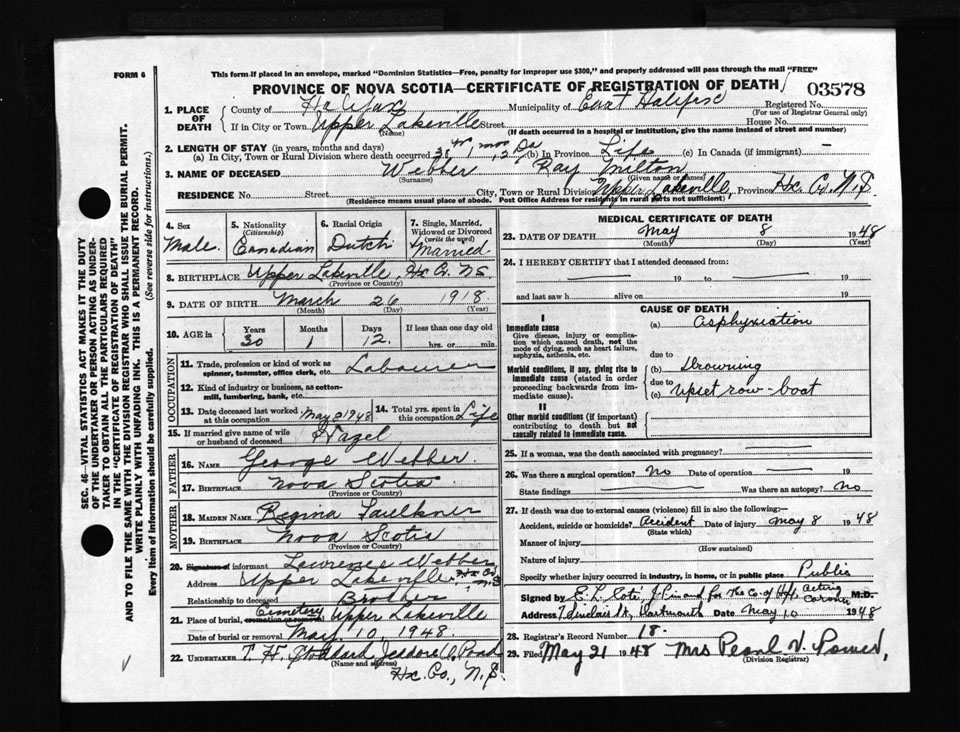 FORM 6
This form if placed in an envelope, marked "Dominion Statistics—Free, penalty for improper use $300," and properly addressed will pass through the mail "FREE"
PROVINCE OF NOVA SCOTIA—CERTIFICATE OF REGISTRATION OF DEATH 03578
1. PLACE OF DEATH County of Halifax Municipality of East Halifax Registered No.
(For use of Registrar General only)
If in City or Town Upper Lakeville Street House No.
(Name) (If death occurred in a hospital or institution, give the name instead of street and number)
2. LENGTH OF STAY (in years, months and days)
(a) In City, Town or Rural Division where death occurred (b) In Province Life (c) In Canada (if immigrant) —
3. NAME OF DECEASED Webber Ray Milton
(Surname) (Given name or names)
RESIDENCE No. Street City, Town or Rural Division Upper Lakeville, Province Hx. Co. N.S.
(Residence means usual place of abode. Post Office Address for residents in rural parts not sufficient)
4. Sex
Male.
5. Nationality
(Citizenship)
Canadian
6. Racial Origin
Dutch
7. Single, Married, Widowed or Divorced
(write the word)
Married
8. BIRTHPLACE Upper Lakeville, Hx Co. N.S.
(Province or Country)
9. DATE OF BIRTH March 26 1918
(Month) (Day) (Year)
10. AGE in Years Months Days If less than one day old
30 1 12. hrs. or min.
OCCUPATION
11. Trade, profession or kind of work as spinner, teamster, office clerk, etc. Labourer
12. Kind of industry or business, as cotton-mill, lumbering, bank, etc.
13. Date deceased last worked at this occupation May 1948
14. Total yrs. spent in this occupation Life
15. If married give name of wife or husband of deceased Hazel
FATHER
16. NAME George Webber
17. BIRTHPLACE Nova Scotia
(Province or Country)
MOTHER
18. MAIDEN NAME Regina Faulkner
19. BIRTHPLACE Nova Scotia
(Province or Country)
20. Signature of informant Lawrence Webber
Address Upper Lakeville Hx Co N.S
Relationship to deceased Brother
21. Place of burial, cremation or removal Cemetery Upper Lakeville
Date of burial or removal May 10, 1948.
22. UNDERTAKER T. H. Stoddard Jeddore
(Name and address)
Hx. Co., N.S.
MEDICAL CERTIFICATE OF DEATH
23. DATE OF DEATH May 8 1948
(Month) (Day) (Year)
24. I HEREBY CERTIFY that I attended deceased from:
19 to 19
and last saw h alive on 19
CAUSE OF DEATH
I
Immediate cause
Give disease, injury or complication which caused death, not the mode of dying, such as heart failure, asphyxia, asthenia, etc.
(a) Asphyxiation
due to
Morbid conditions, if any, giving rise to immediate cause (stated in order proceeding backwards from immediate cause).
(b) Drowning
due to
(c) Upset row-boat
II
Other morbid conditions (if important) contributing to death but not causally related to immediate cause.
25. If a woman, was the death associated with pregnancy?
26. Was there a surgical operation? No Date of operation 19
State findings Was there an autopsy? No
27. If death was due to external causes (violence) fill in also the following:
Accident, suicide or homicide? Accident Date of injury May 8 1948
(State which)
Manner of injury
(How sustained)
Nature of injury
Specify whether injury occurred in industry, in home, or in public place Public
Signed by M.D.
Address Dartmouth Date May 10 1948
28. Registrar's Record Number 18.
29. Filed May 21 1948 Mrs Pearl V. Power,
(Division Registrar)
SEC. 46—VITAL STATISTICS ACT MAKES IT THE DUTY
OF THE UNDERTAKER OR PERSON ACTING AS UNDER-
TAKER TO OBTAIN ALL THE PARTICULARS REQUIRED
IN THE "CERTIFICATE OF REGISTRATION OF DEATH"
AND TO FILE THE SAME WITH THE DIVISION REGISTRAR WHO SHALL ISSUE THE BURIAL PERMIT.
WRITE PLAINLY WITH UNFADING INK. THIS IS A PERMANENT RECORD.
Every item of information should be carefully supplied. (See reverse side for instructions.)